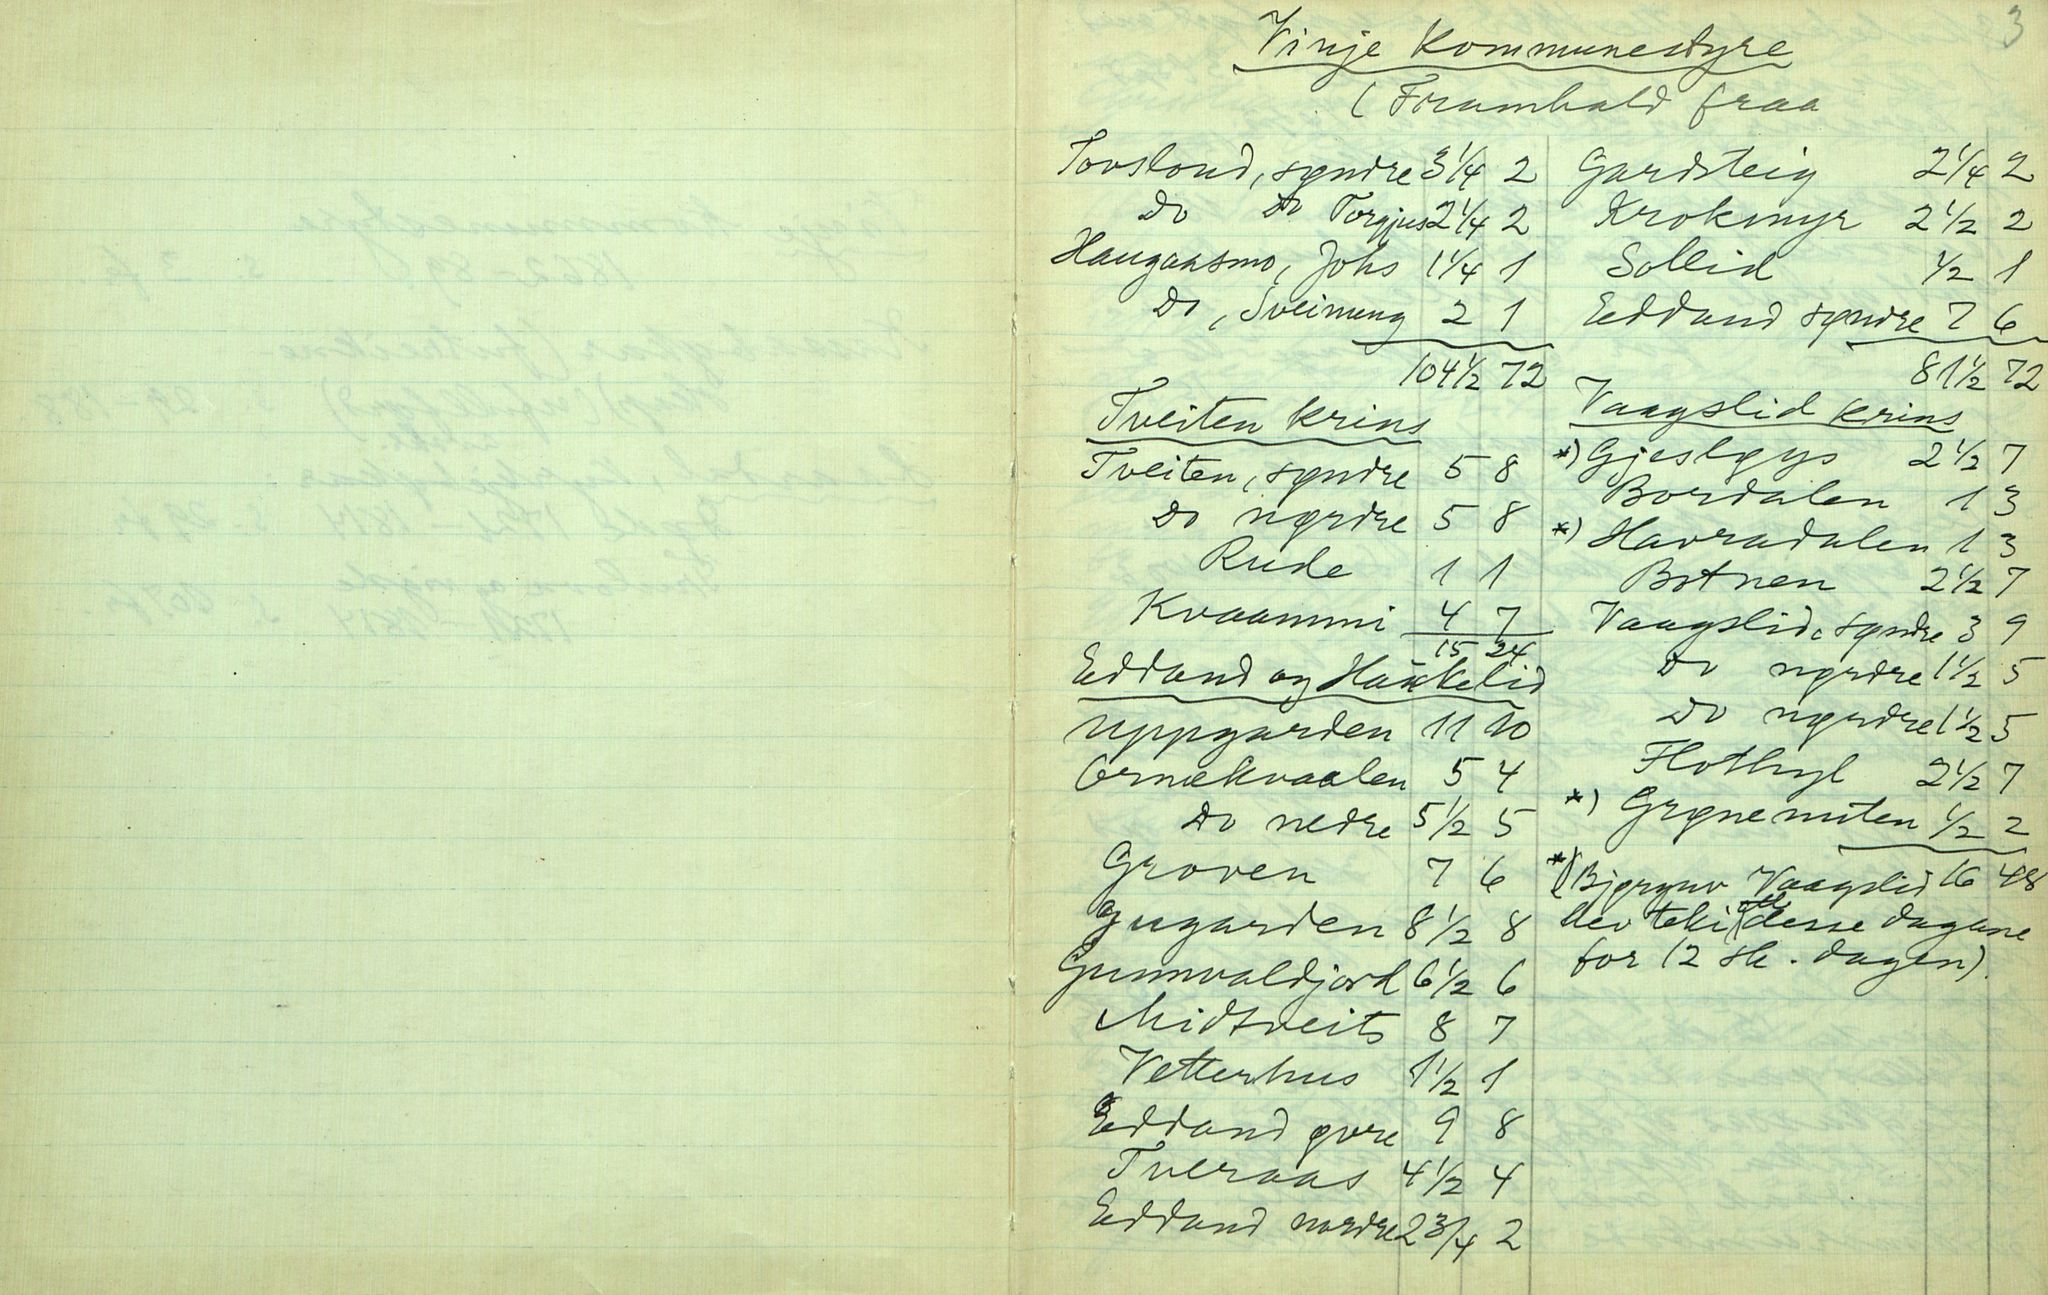 3
Vinje Kommunestyre
(Framhald fraa
Tovslond, syndre 3 1/4 2
Do Do Torgjus 2 1/4 2
Haugaasmo, Johs 1 1/4 1
Do, Sveinung 2 1
104 1/2 72
Tveiten krins
Tveiten, syndre 5 8
Do nyrdre 5 8
Rude 1 1
Kvaammi 4 7
15 24
Eddand og Haukelid
Uppgarden 11 10
Ornekvaalen 5 4
Do nedre 5 1/2 5
Groven 7 6
Nygarden 8 1/2 8
Gunnvaldjord 6 1/2 6
Midtveit 8 7
Vetterhus 1 1/2 1
Eddand øvre 9 8
Tveraas 4 1/2 4
Eddand nordre 2 3/4 2
Gardsteig 2 1/4 2
Krokmyr 2 1/2 2
Sollid 1/2 1
Eddand syndre 7 6
81 1/2 72
Vaagslid krins
*) Gjesløys 2 1/2 7
Bordalen 1 3
*) Havradalen 1 3
Botnen 2 1/2 7
Vaagslid, syndre 3 9
Do nyrdre 1 1/2 5
Do nyrdre 1 1/2 5
Flothyl 2 1/2 7
*) Grønenuten 1/2 2
16 48
*) (Bjørguv Vaagslid
hev teki att desse dagane
for 12 sk. dagen).